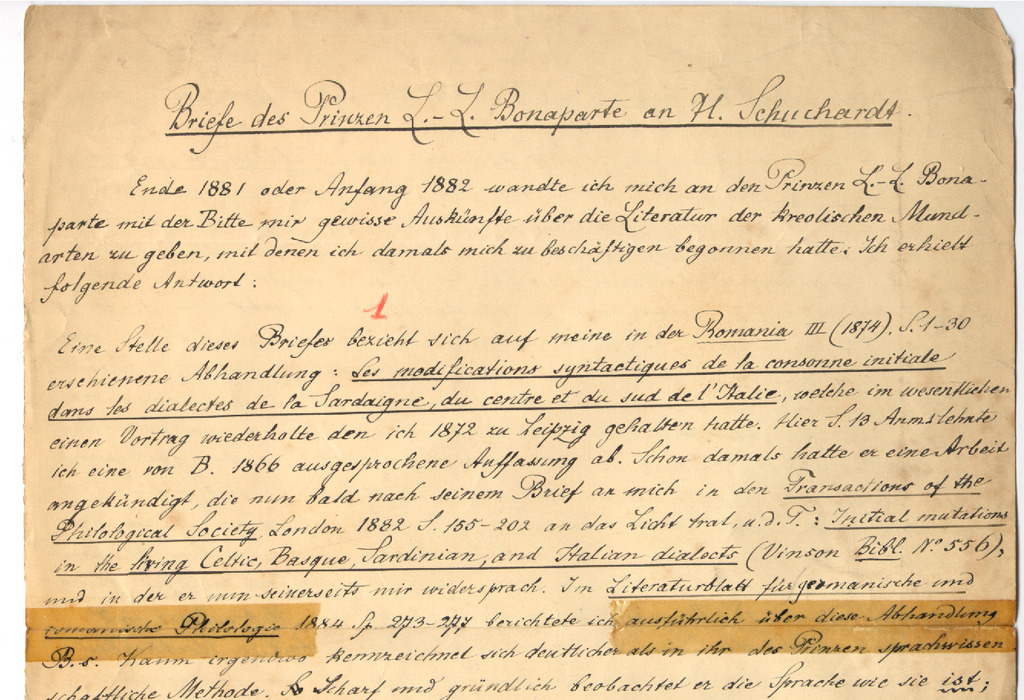 Briefe des Prinzen L.-L. Bonaparte an H. Schuchardt.
Ende 1881 oder Anfang 1882 wandte ich mich an den Prinzen L.-L. Bona-
parte mit der Bitte mir gewisse Auskünfte über die Literatur der kreolischen Mund-
arten zu geben, mit denen ich damals mich zu beschäftigen begonnen hatte. Ich erhielt
folgende Antwort:
1
Eine Stelle dieses Briefes bezieht sich auf meine in der Romania III (1874). S. 1-30
erschienene Abhandlung: Les modifications syntactiques de la consonne initiale
dans les dialectes de la Sardaigne, du centre et du sud de l'Italie, welche im wesentlichen
einen Vortrag wiederholte den ich 1872 zu Leipzig gehalten hatte. Hier S. 13 Anm. lehnte
ich eine von B. 1866 ausgesprochene Auffassung ab. Schon damals hatte er eine Arbeit
angekündigt, die nun bald nach seinem Brief an mich in den Transactions of the
Philological Society London 1882 S. 155-202 an das Licht trat, u.d.T.: Initial mutations
in the living Celtic, Basque, Sardinian, and Italian dialects (Vinson Bibl. No 556),
und in der er nun seinerseits mir widersprach. Im Literaturblatt für germanische und
romanische Philologie 1884 Sp 273-277 berichtete ich ausführlich über diese Abhandlung
B.s. Kaum irgendwo kennzeichnet sich deutlicher als in ihr des Prinzen sprachwissen
schaftliche Methode. Scharf und gründlich beobachtet er die Sprache wie sie ist;